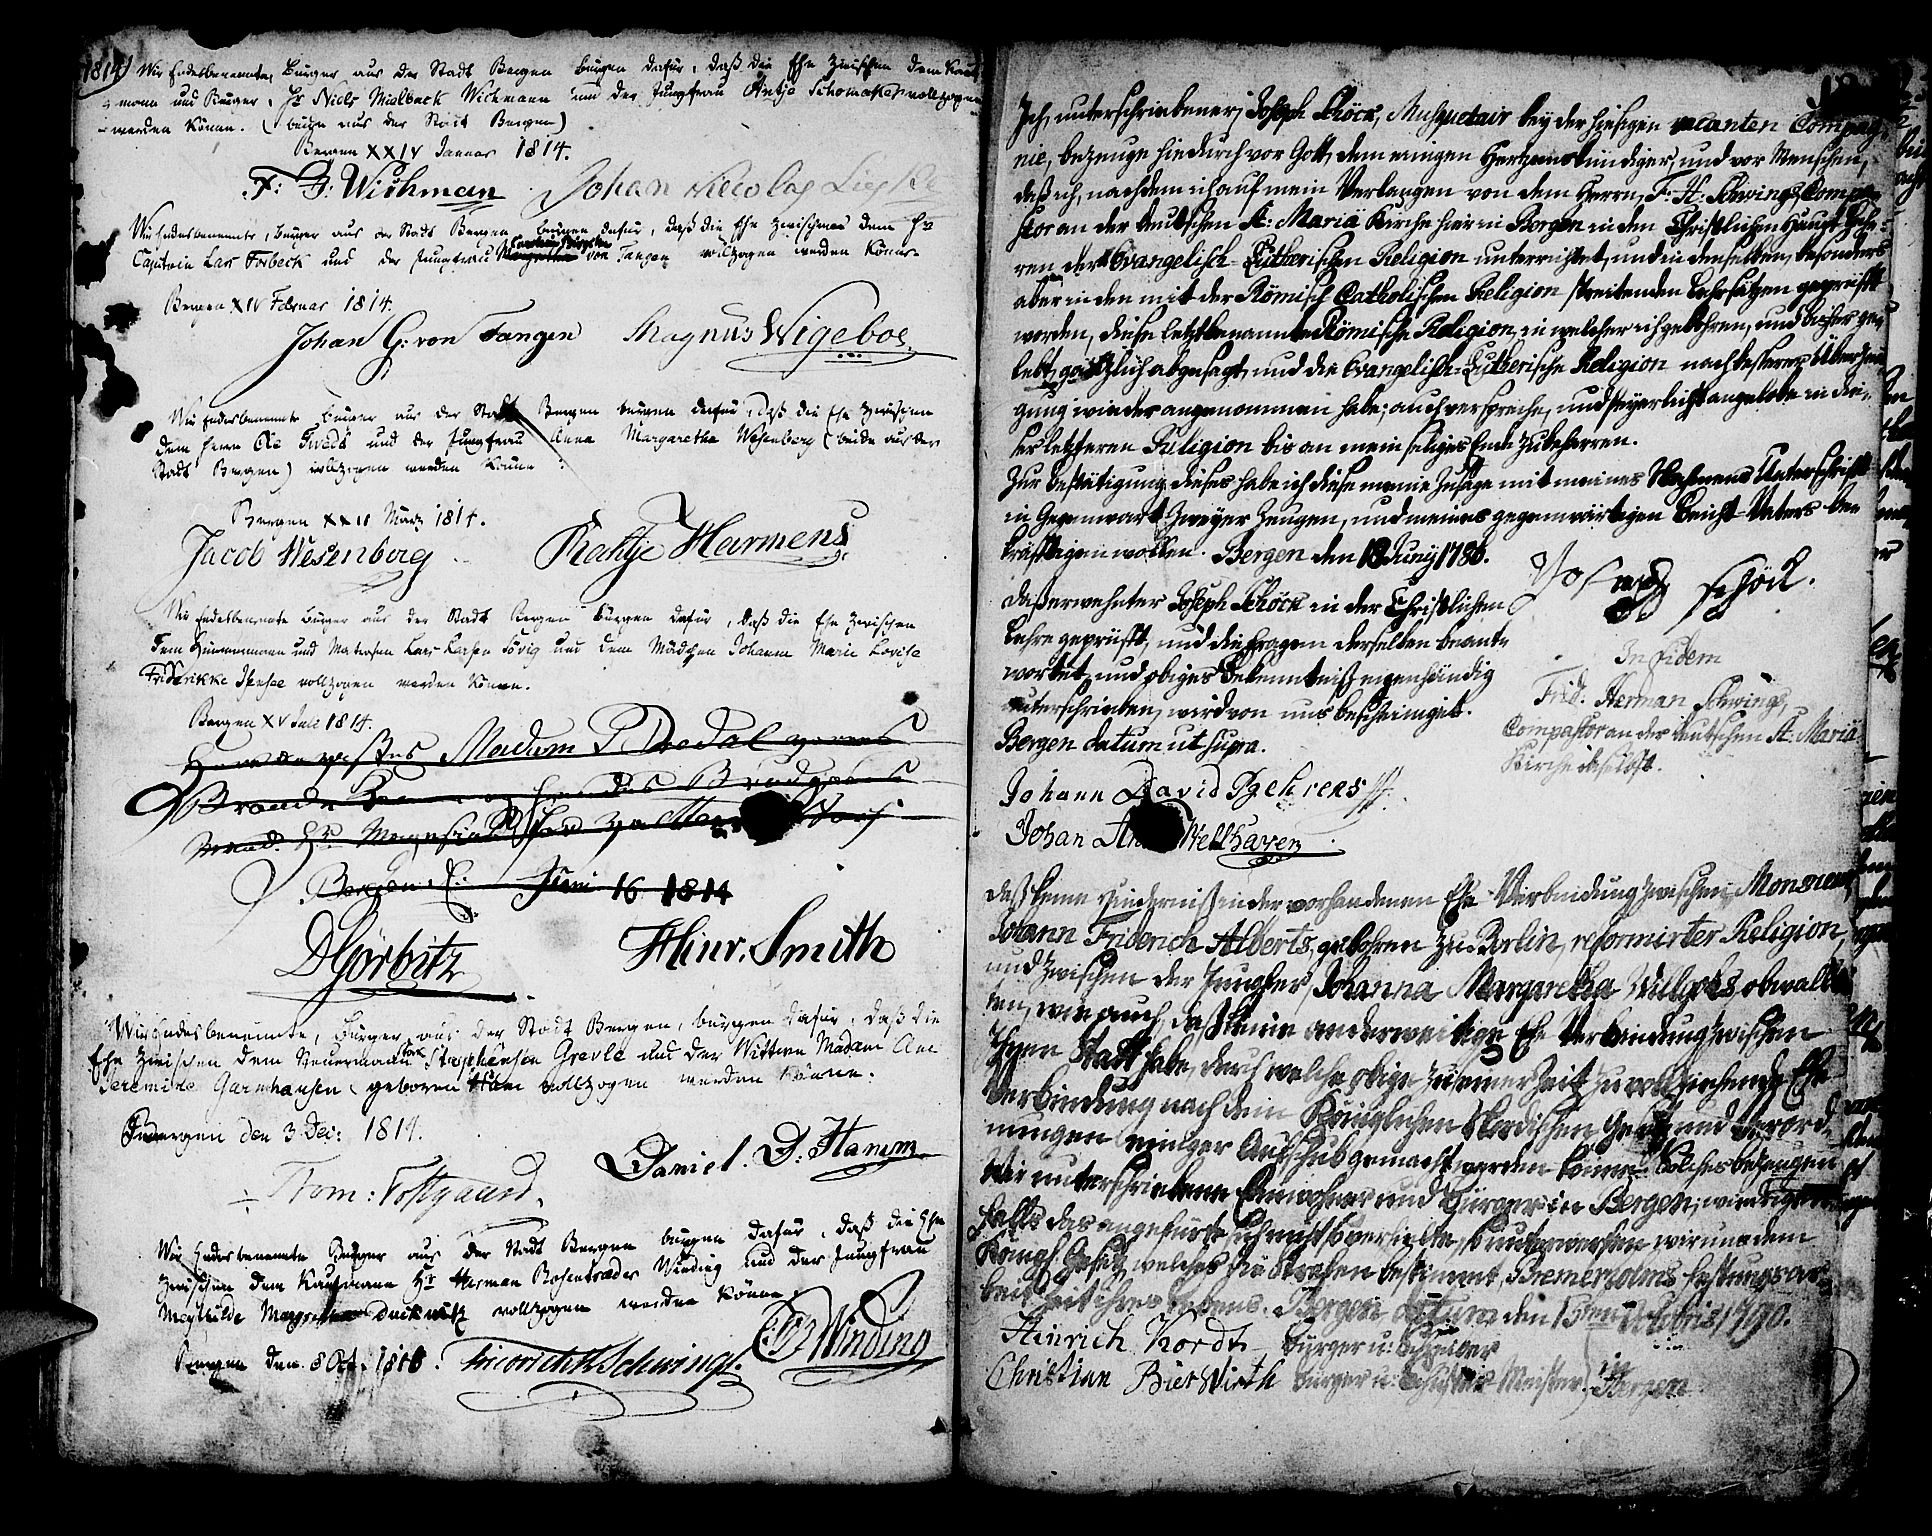 1814) Wir Endesbenennte, Bürger aus der Stadt Bergen bürgen dafür, daß die Ehe zwischen dem Kauf-
mann und Bürger, Hr Niels Mielback Wichmann und der Jungfrau Antje Schomaker vollzogen
werden könne. (beide aus der Stadt Bergen)
Bergen XXIV Januar 1814.
F: F: Wichman Johan Nicolay
Wir Endesbenennte, Bürger aus der Stadt Bergen bürgen dafür, daß die Ehe zwischen dem Hr
Capitein Lars Forbeck und der Jungfrau von Tangen vollzogen werden könne.
Bergen XIV Februar 1814.
Johan G: von Tangen Magnus Wigeboe
Wir Endesbenennte Bürger aus der Stadt Bergen bürgen dafür, daß die Ehe zwischen
dem Herrn Ole Tveck und der Jungfrau Anna Margaretha Wesenberg (beide aus der
Stadt Bergen) vollzogen werden könne.
Bergen XXII März 1814.
Jacob Wesenberg Harmens
Wir Endesbenennte Bürger aus der Stadt Bergen bürgen dafür, daß die Ehe zwischen
dem und Matrosen Lars Larsen Sövig und dem Mädchen Johanna Marie Lovise
Friderikke vollzogen werden könne.
Bergen XV Juli 1814.
Madam
Bergen. Juni 16 1814
D Görbitz Hinr. Smith
Wir Endesbenennte, Bürger aus der Stadt Bergen, bürgen dafür, daß die
Ehe zwischen dem Steuermann Stephensen Grevle und der Wittwe Madam Ane
Jeremine Garmhausen (geboren Ham vollzogen werden könne.
Bergen den 3 Dec: 1814.
Daniel. D. Hamm
Thom: Fostgaard.
Wir Endesbenennte Bürger aus der Stadt Bergen bürgen dafür, daß die Ehe
zwischen dem Kaufmann Hr Herman Rosentræder Winding und der Jungfrau
Megtilde Margretha Duckwitz vollzogen werden könne.
Bergen den 8 Oct. Friederich H. Schwings. Winding
Ich unterschriebener, Joseph Schöck, Musquetair bey der hiesigen vacanten Compag-
nie, bezeuge hiedurch vor Gott, dem einigen Hertzenskündiger, und vor Menschen,
daß ich, nachdem ich auf mein Verlangen von dem Herrn, F. H. Schwings, Compa-
stor an der deutschen St: Maria Kirche hier in Bergen in den Christlichen Haupt-Leh-
ren der Evangelisch-Lutherischen Religion unterrichtet, und in denselben, besonders
aber in den mit der Römisch Catholischen Religion streitenden Lehrsätzen geprüfft
worden, diese letztbenannte Römische Religion, in welcher ich gebohren, und bisher ge-
lebt, gäntzlich abgesagt, und die Evangelisch-Lutherische Religion nach besterer Überzeu-
gung wieder angenommen habe; auch verspreche, und feyerlichst angelobe in die-
ser letzteren Religion bis an mein seliges Ende zu beharren.
Zur Bestätigung dieses habe ich diese meine Zusage mit meines Nahmens Unterschrifft
in Gegenwart zweyer Zeugen, und meines gegenwärtigen Beicht-Vaters be-
kräfftigen wollen. Bergen den 18 Juny 1786.
Joseph schöck.
Daß erwehnter Joseph Schöck in der Christlichen
Lehre geprüfft, und die Fragen derselben beant-
wortet, und obiges Bekenntniß eigenhändig
unterschrieben, wird von uns bescheiniget.
Bergen datum ut supra.
In fidem
Frid: Herman Schwings,
Compastor an der deutschen St: Maria
Kirche daselbst.
Johann David Behrens
Johan Wellhaven
Daß keine Hinderniß in der vorhandenen Ehe-Verbindung zwischen Monsieur
Johann Friderich Alberts, gebohren zu Berlin, reformirter Religion,
und zwischen der Jungfer, Johanna Margaretha obwal-
ten, wie auch, daß keine anderweitige Ehe Verbindung zwischen
Ihnen Statt habe, durch welche obige zu seiner Zeit zu vollziehende Ehe-
Verbindung nach dem Königlichen Nordischen Gesetz und Verord-
nungen einiger Aufschub gemacht werden könne: Solches bezeugen
Wir unterschriebene Einwohner und Bürger in Bergen; widrigen-
falls das angeführte sich nicht so verhielte, so unterwerfen wir uns dem
Königl. Gesetz, welches die Strafen bestimmt, Bremerholms Festungs ar-
beit Zeit ihres Lebens. Bergen datum den 15ten Octobris 1790.
Heinrich Kordt, Bürger u:
Christian Bierwirth Bürger u: Schuster-Meister. in Bergen